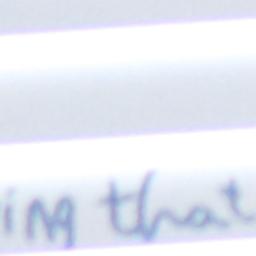 ing that